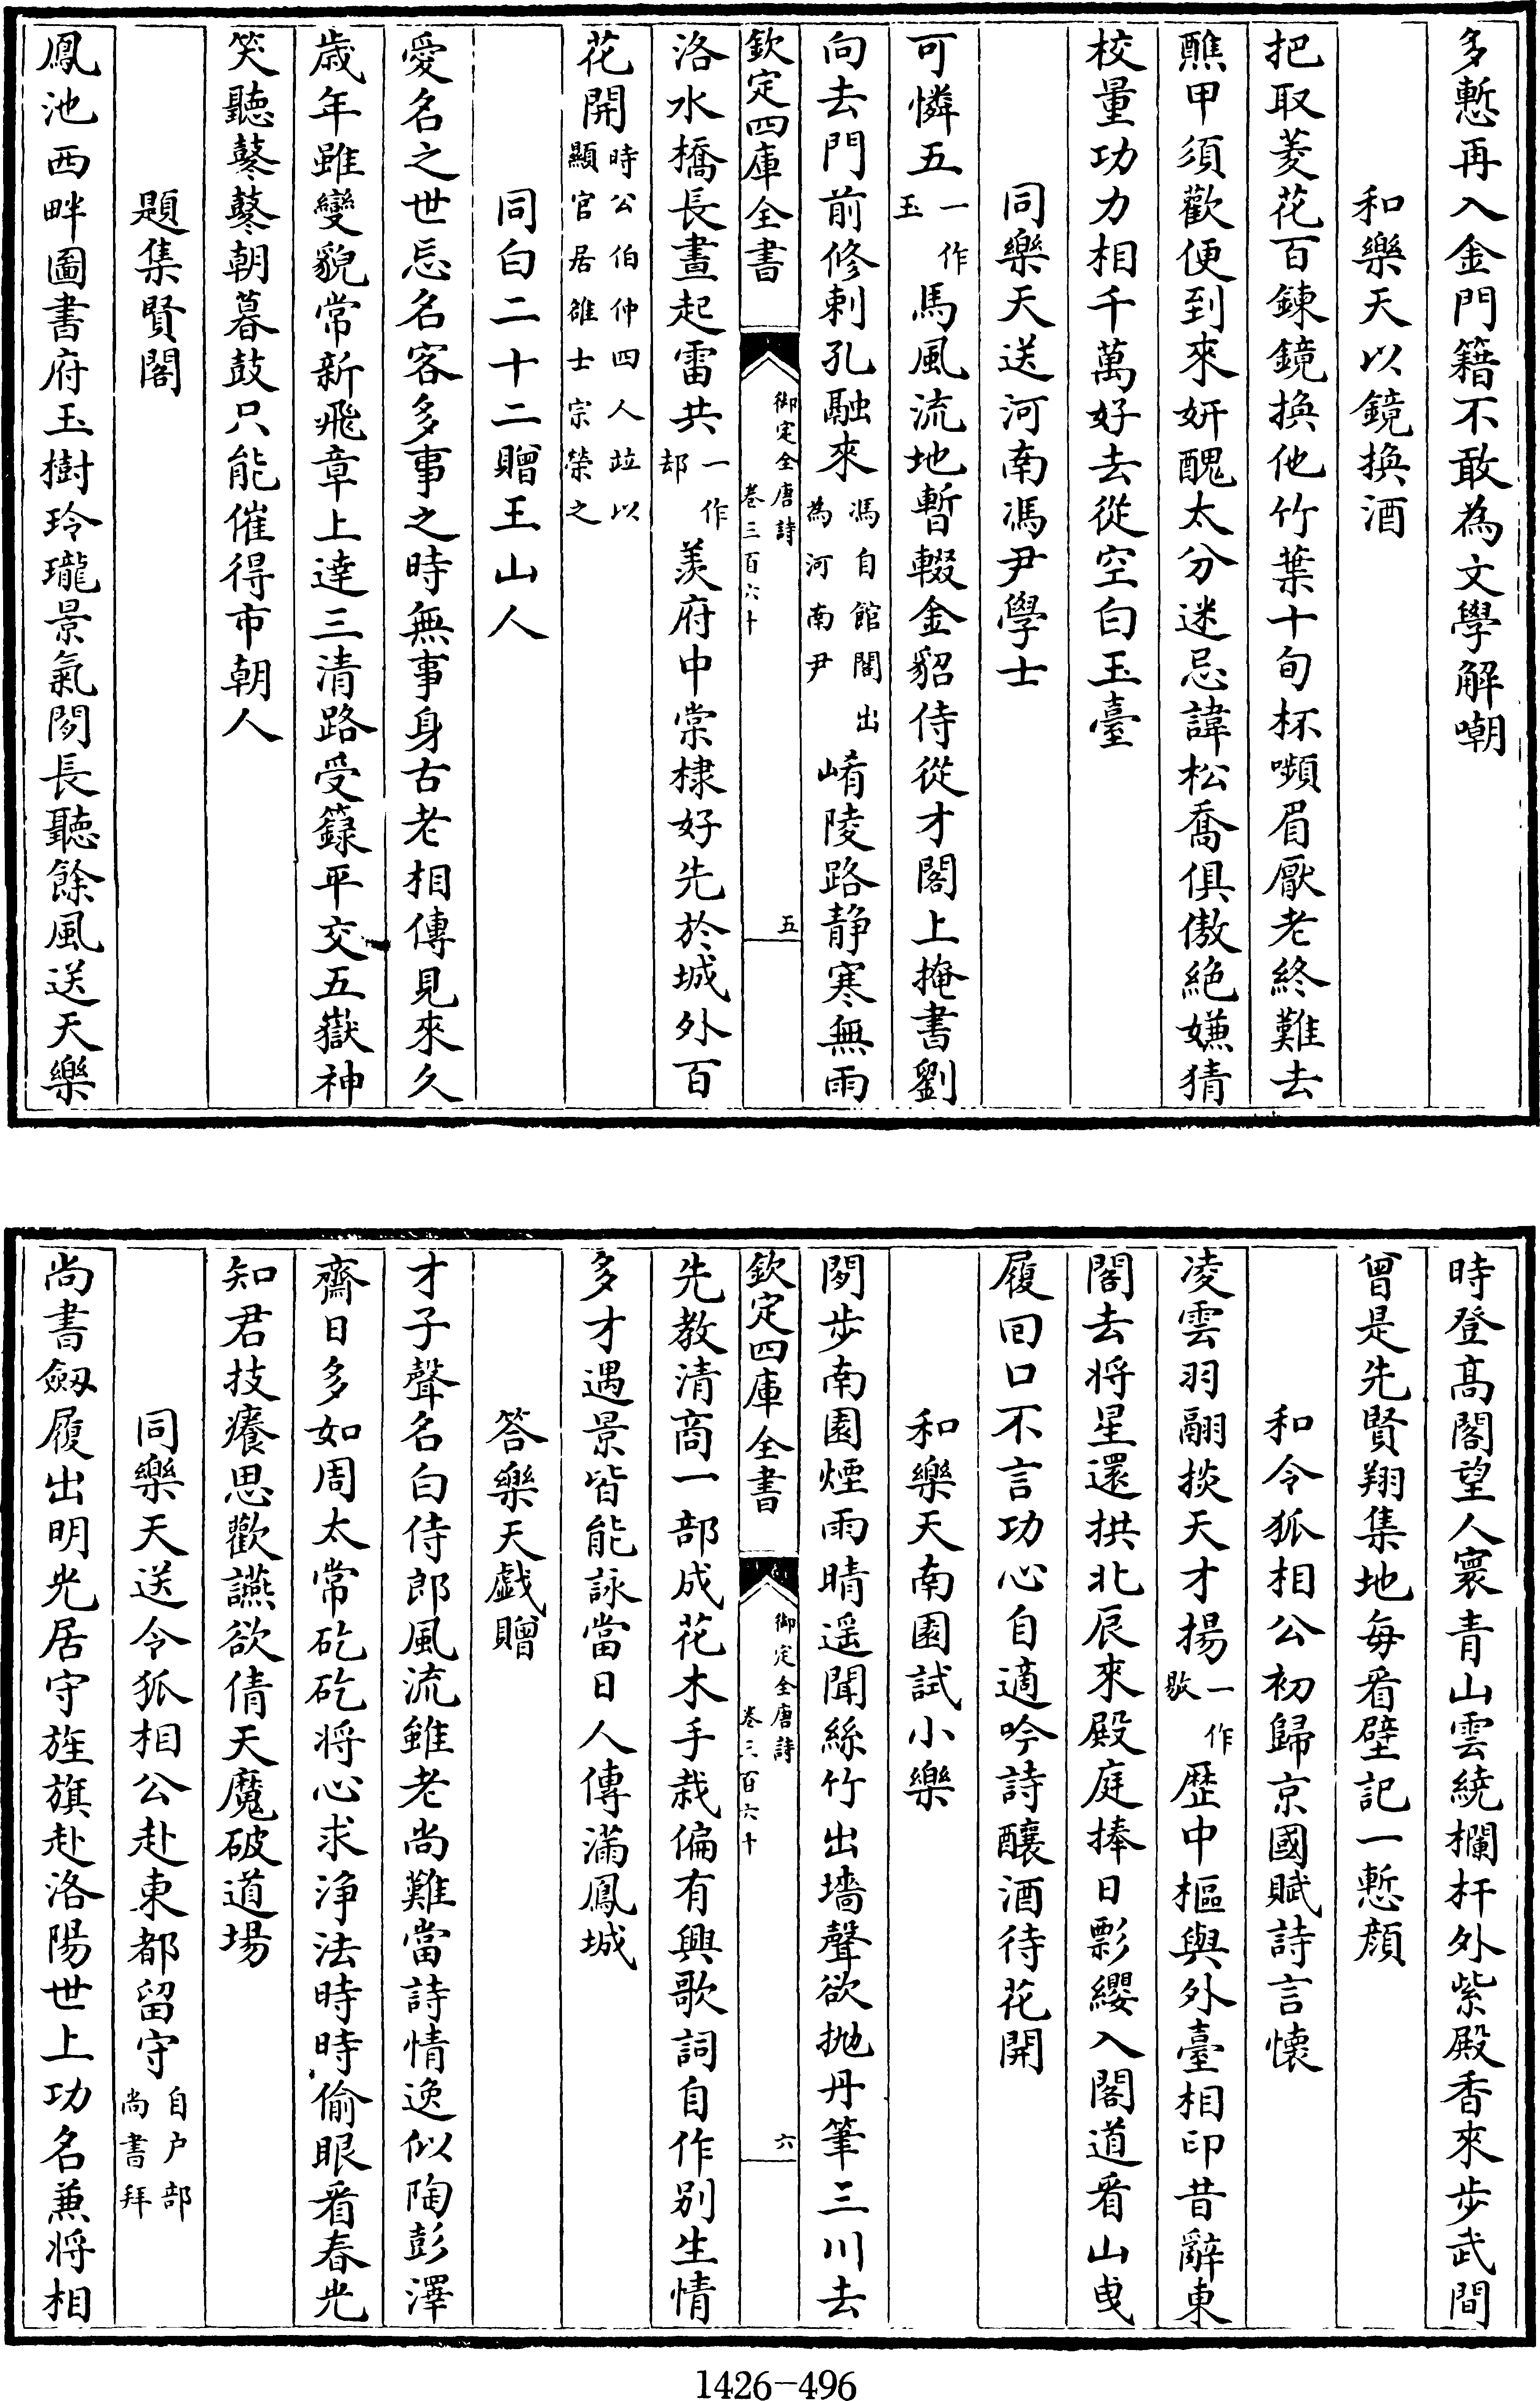 多慙再入金門籍不敢為文學解嘲
和樂天以鏡換酒
把取菱花百鍊鏡換他竹葉十旬杯嚬眉厭老終難去
醮甲須歡便到來妍醜太分迷忌諱松喬俱傲絶嫌猜
校量功力相千萬好去從空白玉臺
同樂天送河南馮尹學士
可憐五一作玉馬風流地暫輟金貂侍從才閣上掩書劉
向去門前修刺孔融來馮自館閣出為河南尹崤陵路静寒無雨
欽定四庫全書
御定全唐詩
卷三百六十
五
洛水橋長晝起雷共一作却羨府中棠棣好先於城外百
花開時公伯仲四人竝以顯官居雒士宗榮之
同白二十二贈王山人
愛名之世忘名客多事之時無事身古老相傳見來久
歲年雖變貌常新飛章上達三清路受籙平交五嶽神
笑聽鼕鼕朝暮鼓只能催得市朝人
題集賢閣
鳳池西畔圖書府玉樹玲瓏景氣閒長聽餘風送天樂
時登高閣望人寰青山雲繞欄杆外紫殿香來步武間
曾是先賢翔集地每看壁記一慙顔
和令狐相公初歸京國賦詩言懷
凌雲羽翮掞天才揚一作敭歴中樞與外臺相印昔辭東
閣去将星還拱北辰來殿庭捧日影纓入閣道看山曵
履回口不言功心自適吟詩釀酒待花開
和樂天南園試小樂
閒步南園煙雨晴遥聞絲竹出墻聲欲抛丹筆三川去
欽定四庫全書
御定全唐詩
卷三百六十
六
先教清商一部成花木手栽偏有興歌詞自作别生情
多才遇景皆能詠當日人傳滿鳳城
答樂天戯贈
才子聲名白侍郎風流雖老尚難當詩情逸似陶彭澤
齋日多如周太常矻矻将心求浄法時時偷眼看春光
知君技癢思歡讌欲倩天魔破道場
同樂天送令狐相公赴東都留守自户部尚書拜
尚書劒履出明光居守旌旗赴洛陽世上功名兼将相
1426-496